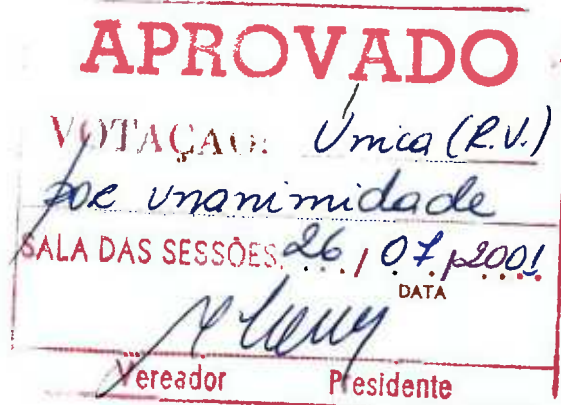 APROVADO
VOTAÇÃO: Única (R.V.)
por unanimidade
SALA DAS SESSÕES, 26 / 07 / 2001
DATA
Vereador Presidente